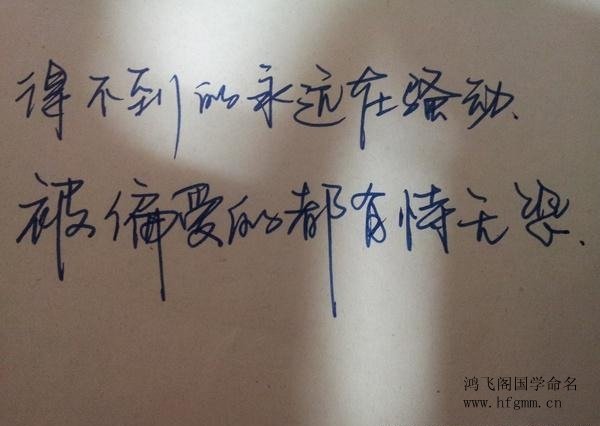 得不到的永远在骚动、
被偏爱的都有恃无恐、
鸿飞阁国学命名
www.hfgmm.cn